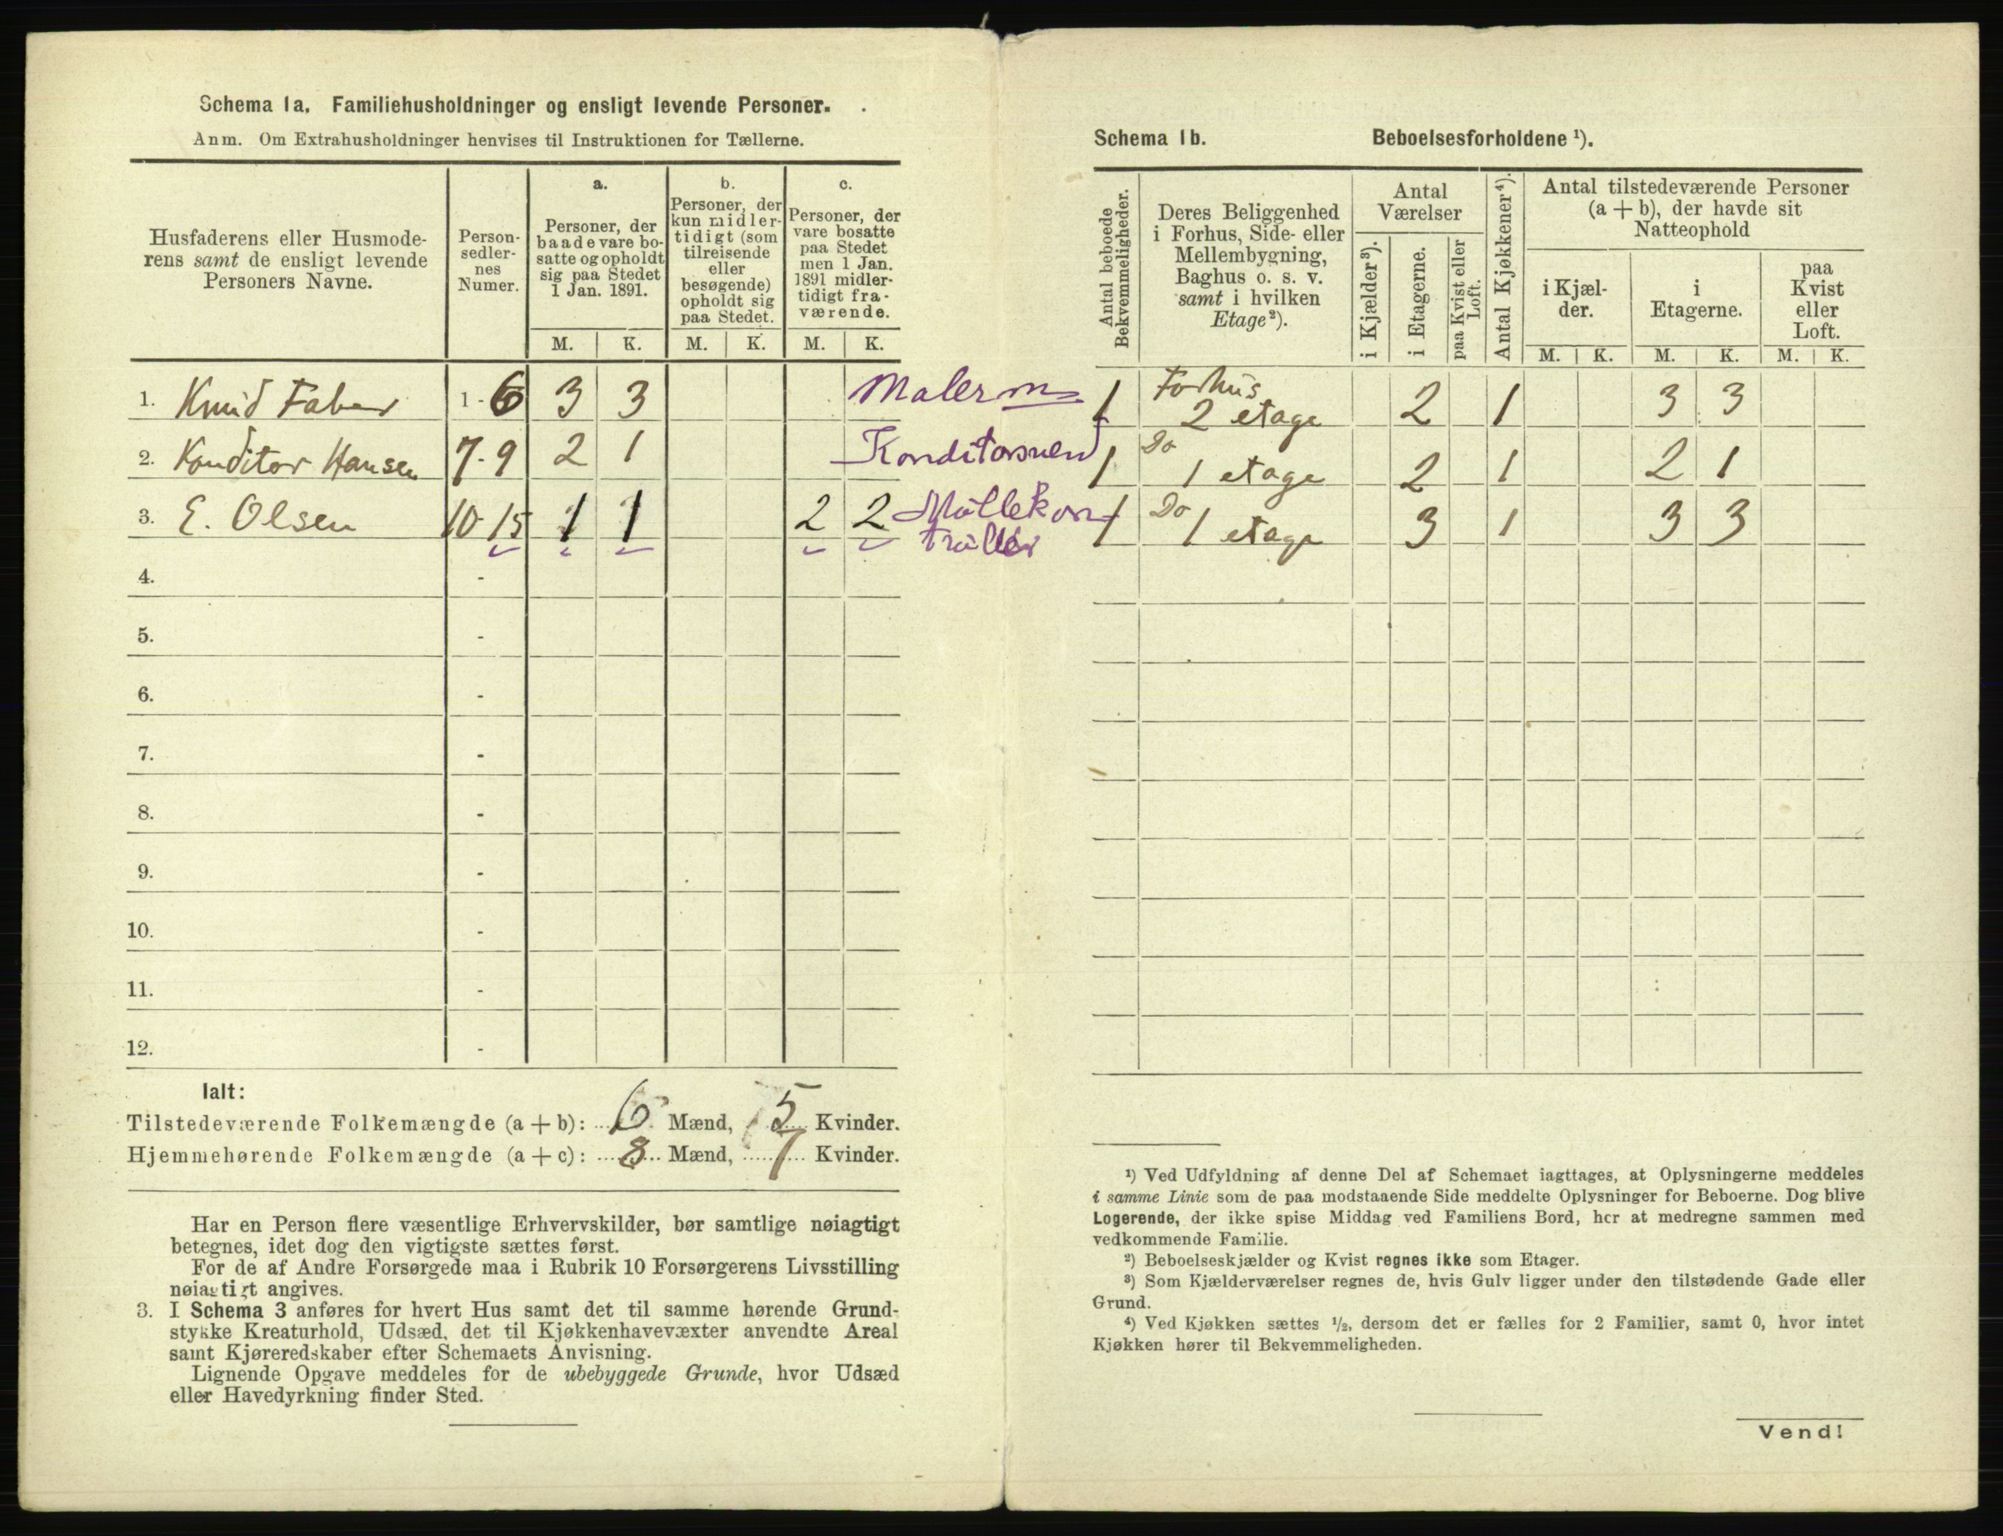 Schema 1a. Familiehusholdninger og ensligt levende Personer.
Anm. Om Extrahusholdninger henvises til Instruktionen for Tællerne.
Husfaderens eller Husmode-
rens samt de ensligt levende
Personers Navne.
Person-
sedler-
nes
Numer.
a.
Personer, der
baade vare bo-
satte og opholdt
sig paa Stedet
1 Jan. 1891.
b.
Personer, der
kun midler-
tidigt (som
tilreisende
eller
besøgende)
opholdt sig
paa Stedet.
c.
Personer, der
vare bosatte
paa Stedet
men 1 Jan.
1891 midler-
tidigt fra-
værende.
M. K. M. K. M. K.
1. Knud Faber 1-6 3 3 Malerm
2. Konditor Hansen 7-9 2 1 Konditorsvend
3. E. Olsen 10-15 1 1 2 2
4. -
5. -
6. -
7. -
8. -
9. -
10. -
11. -
12. -
Ialt:
Tilstedeværende Folkemængde (a + b): 6 Mænd, 5 Kvinder.
Hjemmehørende Folkemængde (a + c): 8 Mænd, 7 Kvinder.
Har en Person flere væsentlige Erhvervskilder, bør samtlige nøiagtigt
betegnes, idet dog den vigtigste sættes først.
For de af Andre Forsørgede maa i Rubrik 10 Forsørgerens Livsstilling
nøiagtigt angives.
3. I Schema 3 anføres for hvert Hus samt det til samme hørende Grund-
stykke Kreaturhold, Udsæd, det til Kjøkkenhavevæxter anvendte Areal
samt Kjøreredskaber efter Schemaets Anvisning.
Lignende Opgave meddeles for de ubebyggede Grunde, hvor Udsæd
eller Havedyrkning finder Sted.
Schema 1b. Beboelsesforholdene ¹).
Antal beboede
Bekvemmeligheder.
Deres Beliggenhed
i Forhus, Side- eller
Mellembygning,
Baghus o. s. v.
samt i hvilken
Etage²).
Antal
Værelser
i Kjælder³).
i Etagerne.
paa Kvist eller
Loft.
Antal Kjøkkener⁴).
Antal tilstedeværende Personer
(a + b), der havde sit
Natteophold
i Kjæl-
der.
i
Etagerne.
paa
Kvist
eller
Loft.
M. K. M. K. M. K.
1 Forhus
2 etage 2 1 3 3
1 Do
1 etage 2 1 2 1
1 Do
1 etage 3 1 3 3
¹) Ved Udfyldning af denne Del af Schemaet iagttages, at Oplysningerne meddeles
i samme Linie som de paa modstaaende Side meddelte Oplysninger for Beboerne. Dog blive
Logerende, der ikke spise Middag ved Familiens Bord, her at medregne sammen med
vedkommende Familie.
²) Beboelseskjælder og Kvist regnes ikke som Etager.
³) Som Kjælderværelser regnes de, hvis Gulv ligger under den tilstødende Gade eller
Grund.
⁴) Ved Kjøkken sættes ½, dersom det er fælles for 2 Familier, samt 0, hvor intet
Kjøkken hører til Bekvemmeligheden.
Vend!